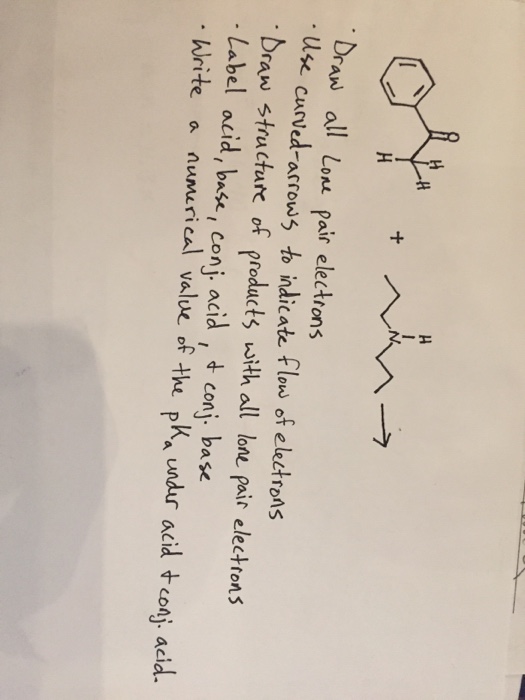 O H H H + H N →
· Draw all Lone pair electrons
· Use curved-arrows to indicate flow of electrons
· Draw structure of products with all lone pair electrons
· Label acid, base, conj. acid, + conj. base
· Write a numerical value of the pKa under acid + conj. acid.